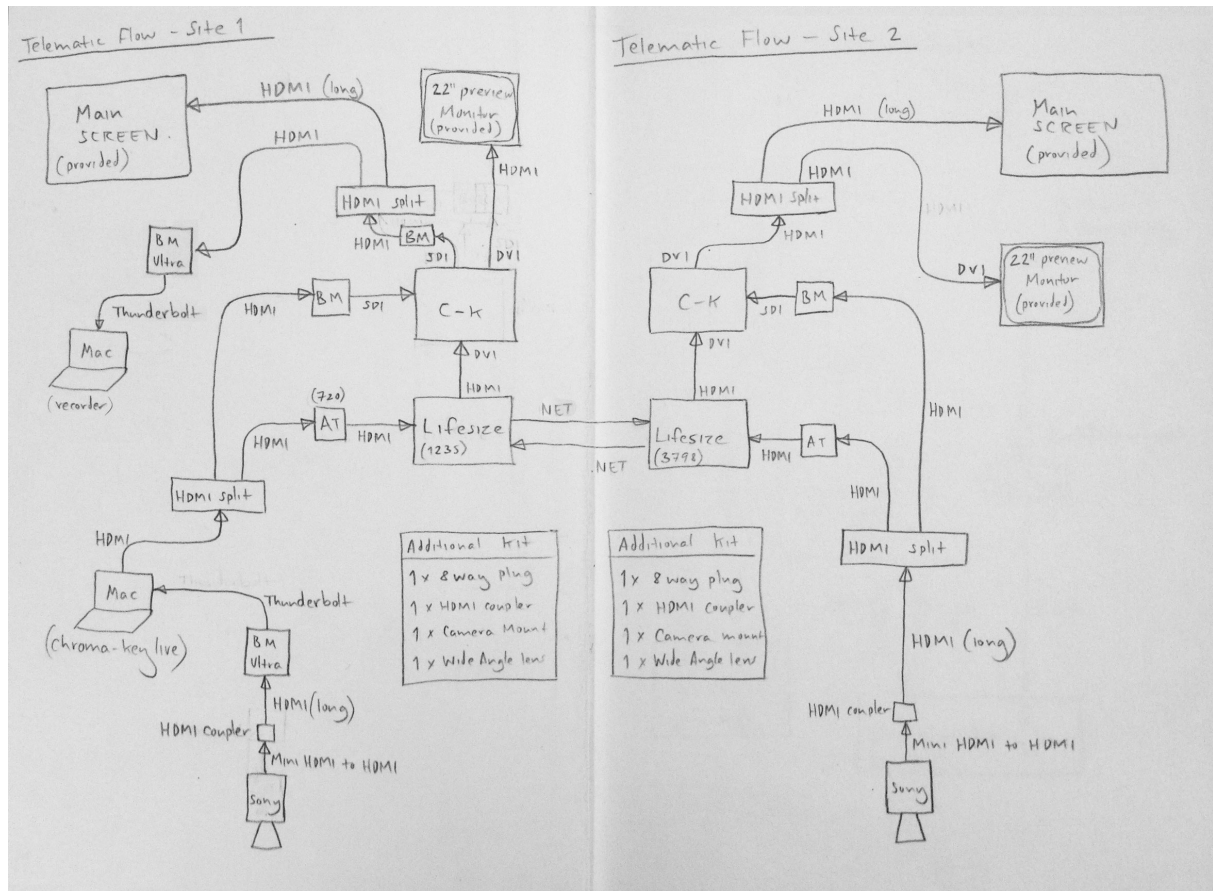 Telematic Flow - Site 1
HDMI (long)
Main
SCREEN.
(provided)
22" preview
Monitor
(provided)
HDMI
HDMI
HDMI split
HDMI
BM
SDI
DVI
BM
Ultra
Thunderbolt
Mac
(recorder)
HDMI
BM
SDI
C-K
DVI
HDMI
(720)
HDMI
AT
HDMI
Lifesize
(1235)
NET
NET
HDMI split
HDMI
Mac
(chroma-key live)
Thunderbolt
BM
Ultra
HDMI (long)
HDMI coupler
Mini HDMI to HDMI
Sony
Additional Kit
1 x 8 way plug
1 x HDMI coupler
1 x Camera Mount
1 x Wide Angle lens
Telematic Flow - Site 2
HDMI (long)
Main
SCREEN
(provided)
HDMI
HDMI split
HDMI
DVI
DVI
22" preview
Monitor
(provided)
C-K
SDI
BM
DVI
HDMI
HDMI
Lifesize
(3798)
HDMI
AT
HDMI
HDMI split
Additional Kit
1 x 8 way plug
1 x HDMI coupler
1 x Camera mount
1 x Wide Angle lens
HDMI (long)
HDMI coupler
Mini HDMI to HDMI
Sony